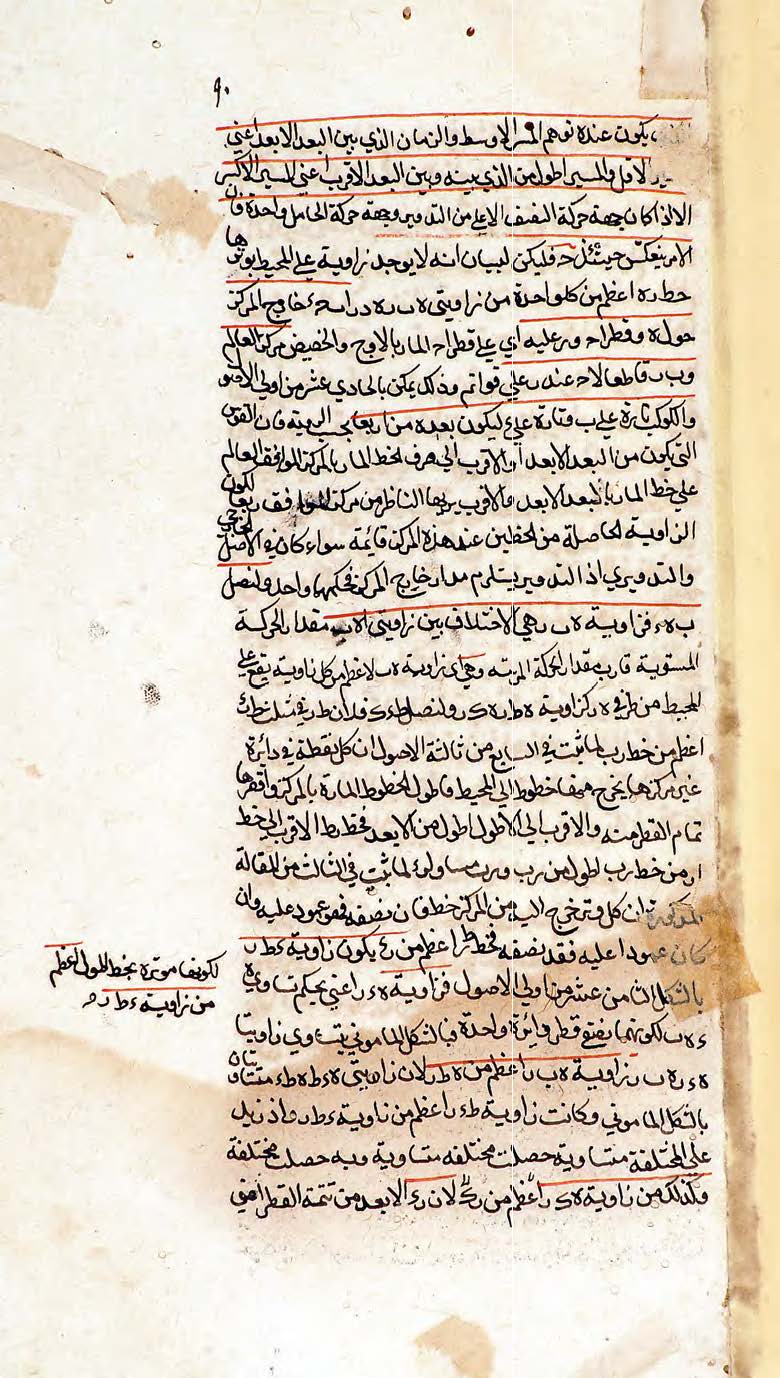 ٩٠
يكون عنده توهم المسير الاوسط والزمان الذي بين البعد الابعد اعني
الاقل والمسير اطول من الذي بينه وبين البعد الاقرب اعني المسير الاكبر
الا اذا كان جهة حركة النصف الاعلى من التدوير وجهة حركة الحامل واحدة فان
الامر ينعكس حينئذ فليكن لبيان انه لا يوجد زاوية على المحيط يوترها
خط ده اعظم من كل واحدة من زاويتي ه ب د خارج المركز
حول ه وقطر ا ح و ر عليه اي على قطر ا ح المار بالاوج والحضيض مركز العالم
و ب ر قاطعا لاح عند ر على قوائم وذلك يمكن بالحادي عشر من اولى الاصول
والكوكب تارة على ب وتارة على ء ليكون بعده من ا ربعا بحسب الروية فان القوس
التي يكون من البعد الابعد او الاقرب الى طرف لخط المار بالمركز الموافق للعالم
على خط المار بالبعد الابعد والاقرب يريها الناظر من مركز الموافق ربعا لكون
الزاوية الحاصلة من الخطين عند هذه المركز قائمة سواء كان في الاصل الخارجي
والتدويري اذ التدوير يستلزم مدار خارج المركز فحكمهما واحد ولنصل
ب ه ء فزاوية ه ب ر هي الاختلاف بين زاويتي مقدار الحركة
المستوية قارب مقدار الحركة المرئية وهي اي زاوية ه ب ر اعظم من كل زاوية يقع على
المحيط من طرفي ه ر كزاوية ه ط ر ه ك ر ولنصل ط ء ك ء فلان ط ر في مثلث
اعظم من خط ر ب لما ثبت في السابع من ثالثة الاصول ان كل نقطة في دائرة
غير مركزها يخرج منها خطوط الى المحيط فاطول الخطوط المارة بالمركز واقصرها
تمام القطر منه والاقرب الى الاطول اطول من الابعد فخط ر ط الاقرب الى خط
ا ر من خط ر ب اطول من ر ب و ر ب مساو لرء لما ثبت في الثالث من المقالة
المذكورة ان كل وتر خرج اليه من المركز خط فان نصفه فهو عمود عليه وان
كان عمودا عليه فقد نصفه فخط ط ر اعظم من ر ء يكون زاوية ء ط ر
بالشكل الثامن عشر من اولى الاصول فزاوية ه ء ر اعني بحكم تساوي ه
ء ه ب لكونهما نصفي قطر دائرة واحدة فبالشكل الماموني يتساوي زاويتا
ه ء ر ه ب ر زاوية ه ب ر اعظم من ه ط ر لان زاويتي ه ء ط ه ط ء متساويتان
بالشكل الماموني وكانت زاوية ط ء ر اعظم من زاوية ء ط ر واذ زيد
على المختلفة متساوية حصلت مختلفة متساوية وبه حصلت مختلفة
وكذلك من زاوية ه ك ر اعظم من ر ك لان ر ء الابعد من تتمة القطر اعني
لكونها موترة بخط اطول اعظم
من زاوية ء ط ر ح